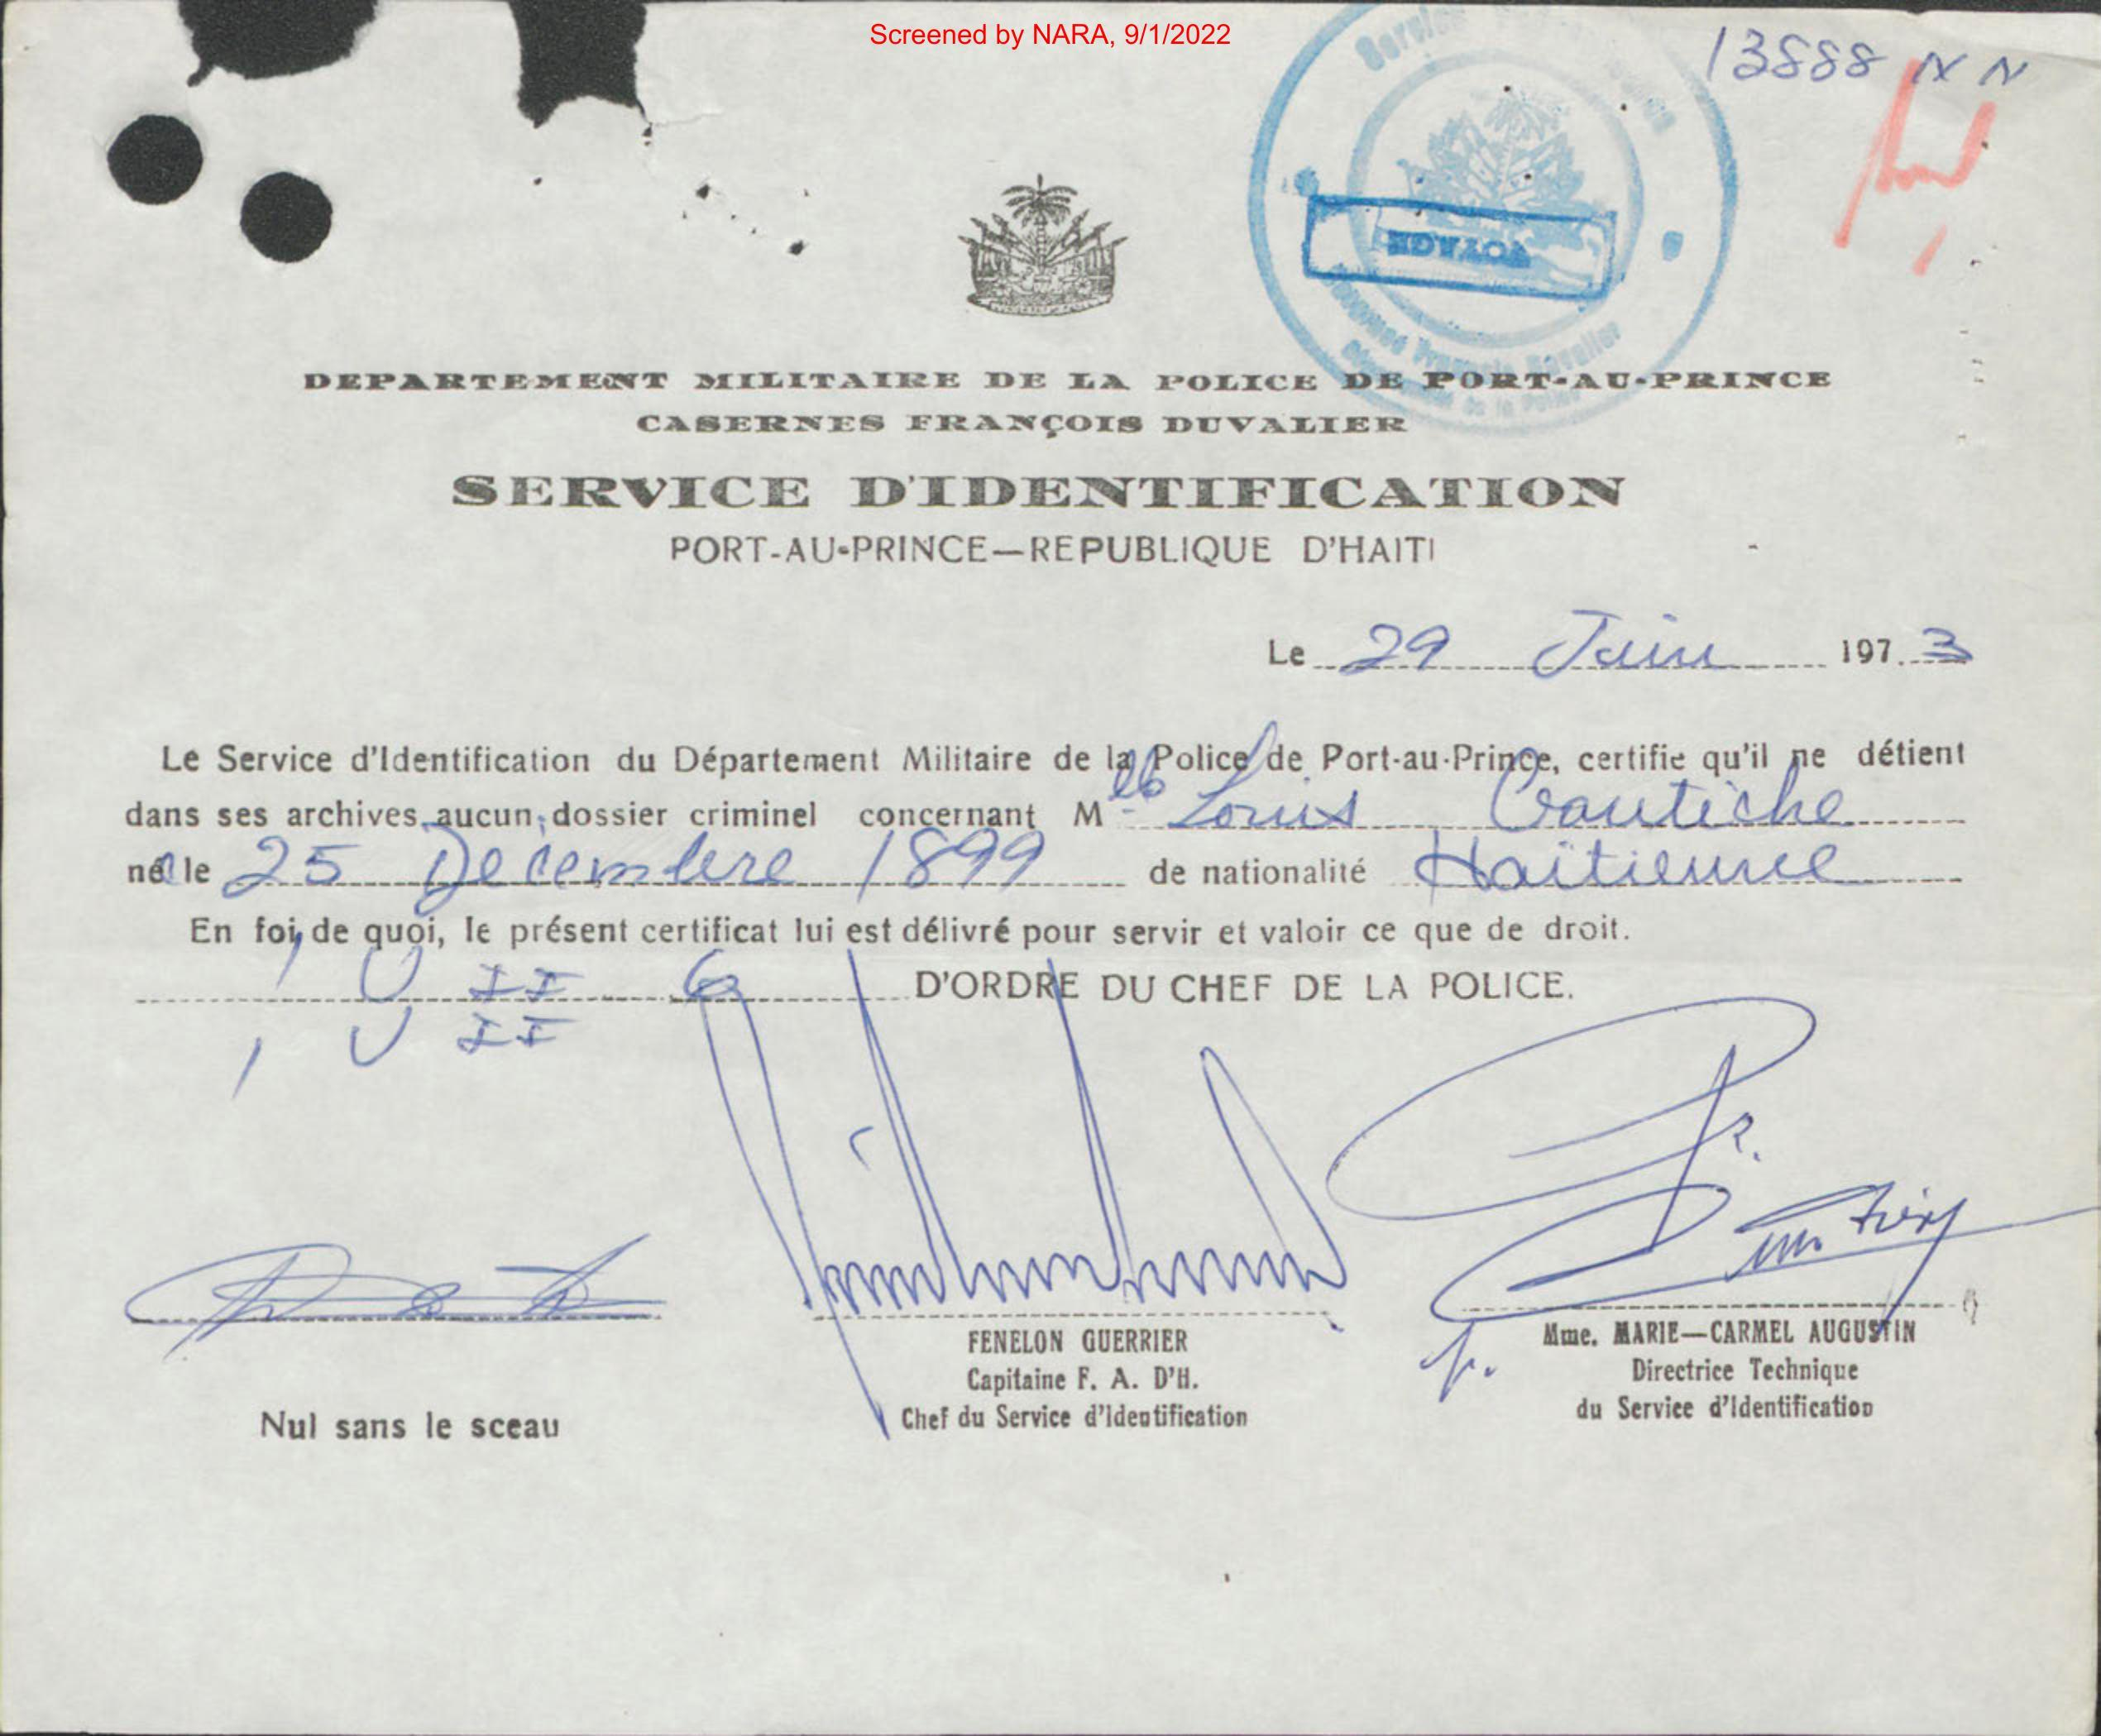 Screened by NARA, 9/1/2022
13888 N N
VOYAGE
DEPARTEMENT MILITAIRE DE LA POLICE DE PORT-AU-PRINCE
CASERNES FRANÇOIS DUVALIER
SERVICE D'IDENTIFICATION
PORT-AU-PRINCE—REPUBLIQUE D'HAITI
Le 29 Juin 1973
Le Service d'Identification du Département Militaire de la Police de Port-au-Prince, certifie qu'il ne détient
dans ses archives aucun dossier criminel concernant Mlle Louis
née le 25 Decembre 1899 de nationalité Haïtienne
En foi de quoi, le présent certificat lui est délivré pour servir et valoir ce que de droit.
, U II 6 D'ORDRE DU CHEF DE LA POLICE.
, U II
FENELON GUERRIER
Capitaine F. A. D'H.
Chef du Service d'Identification
p. Mme. MARIE—CARMEL AUGUSTIN
Directrice Technique
du Service d'Identification
Nul sans le sceau